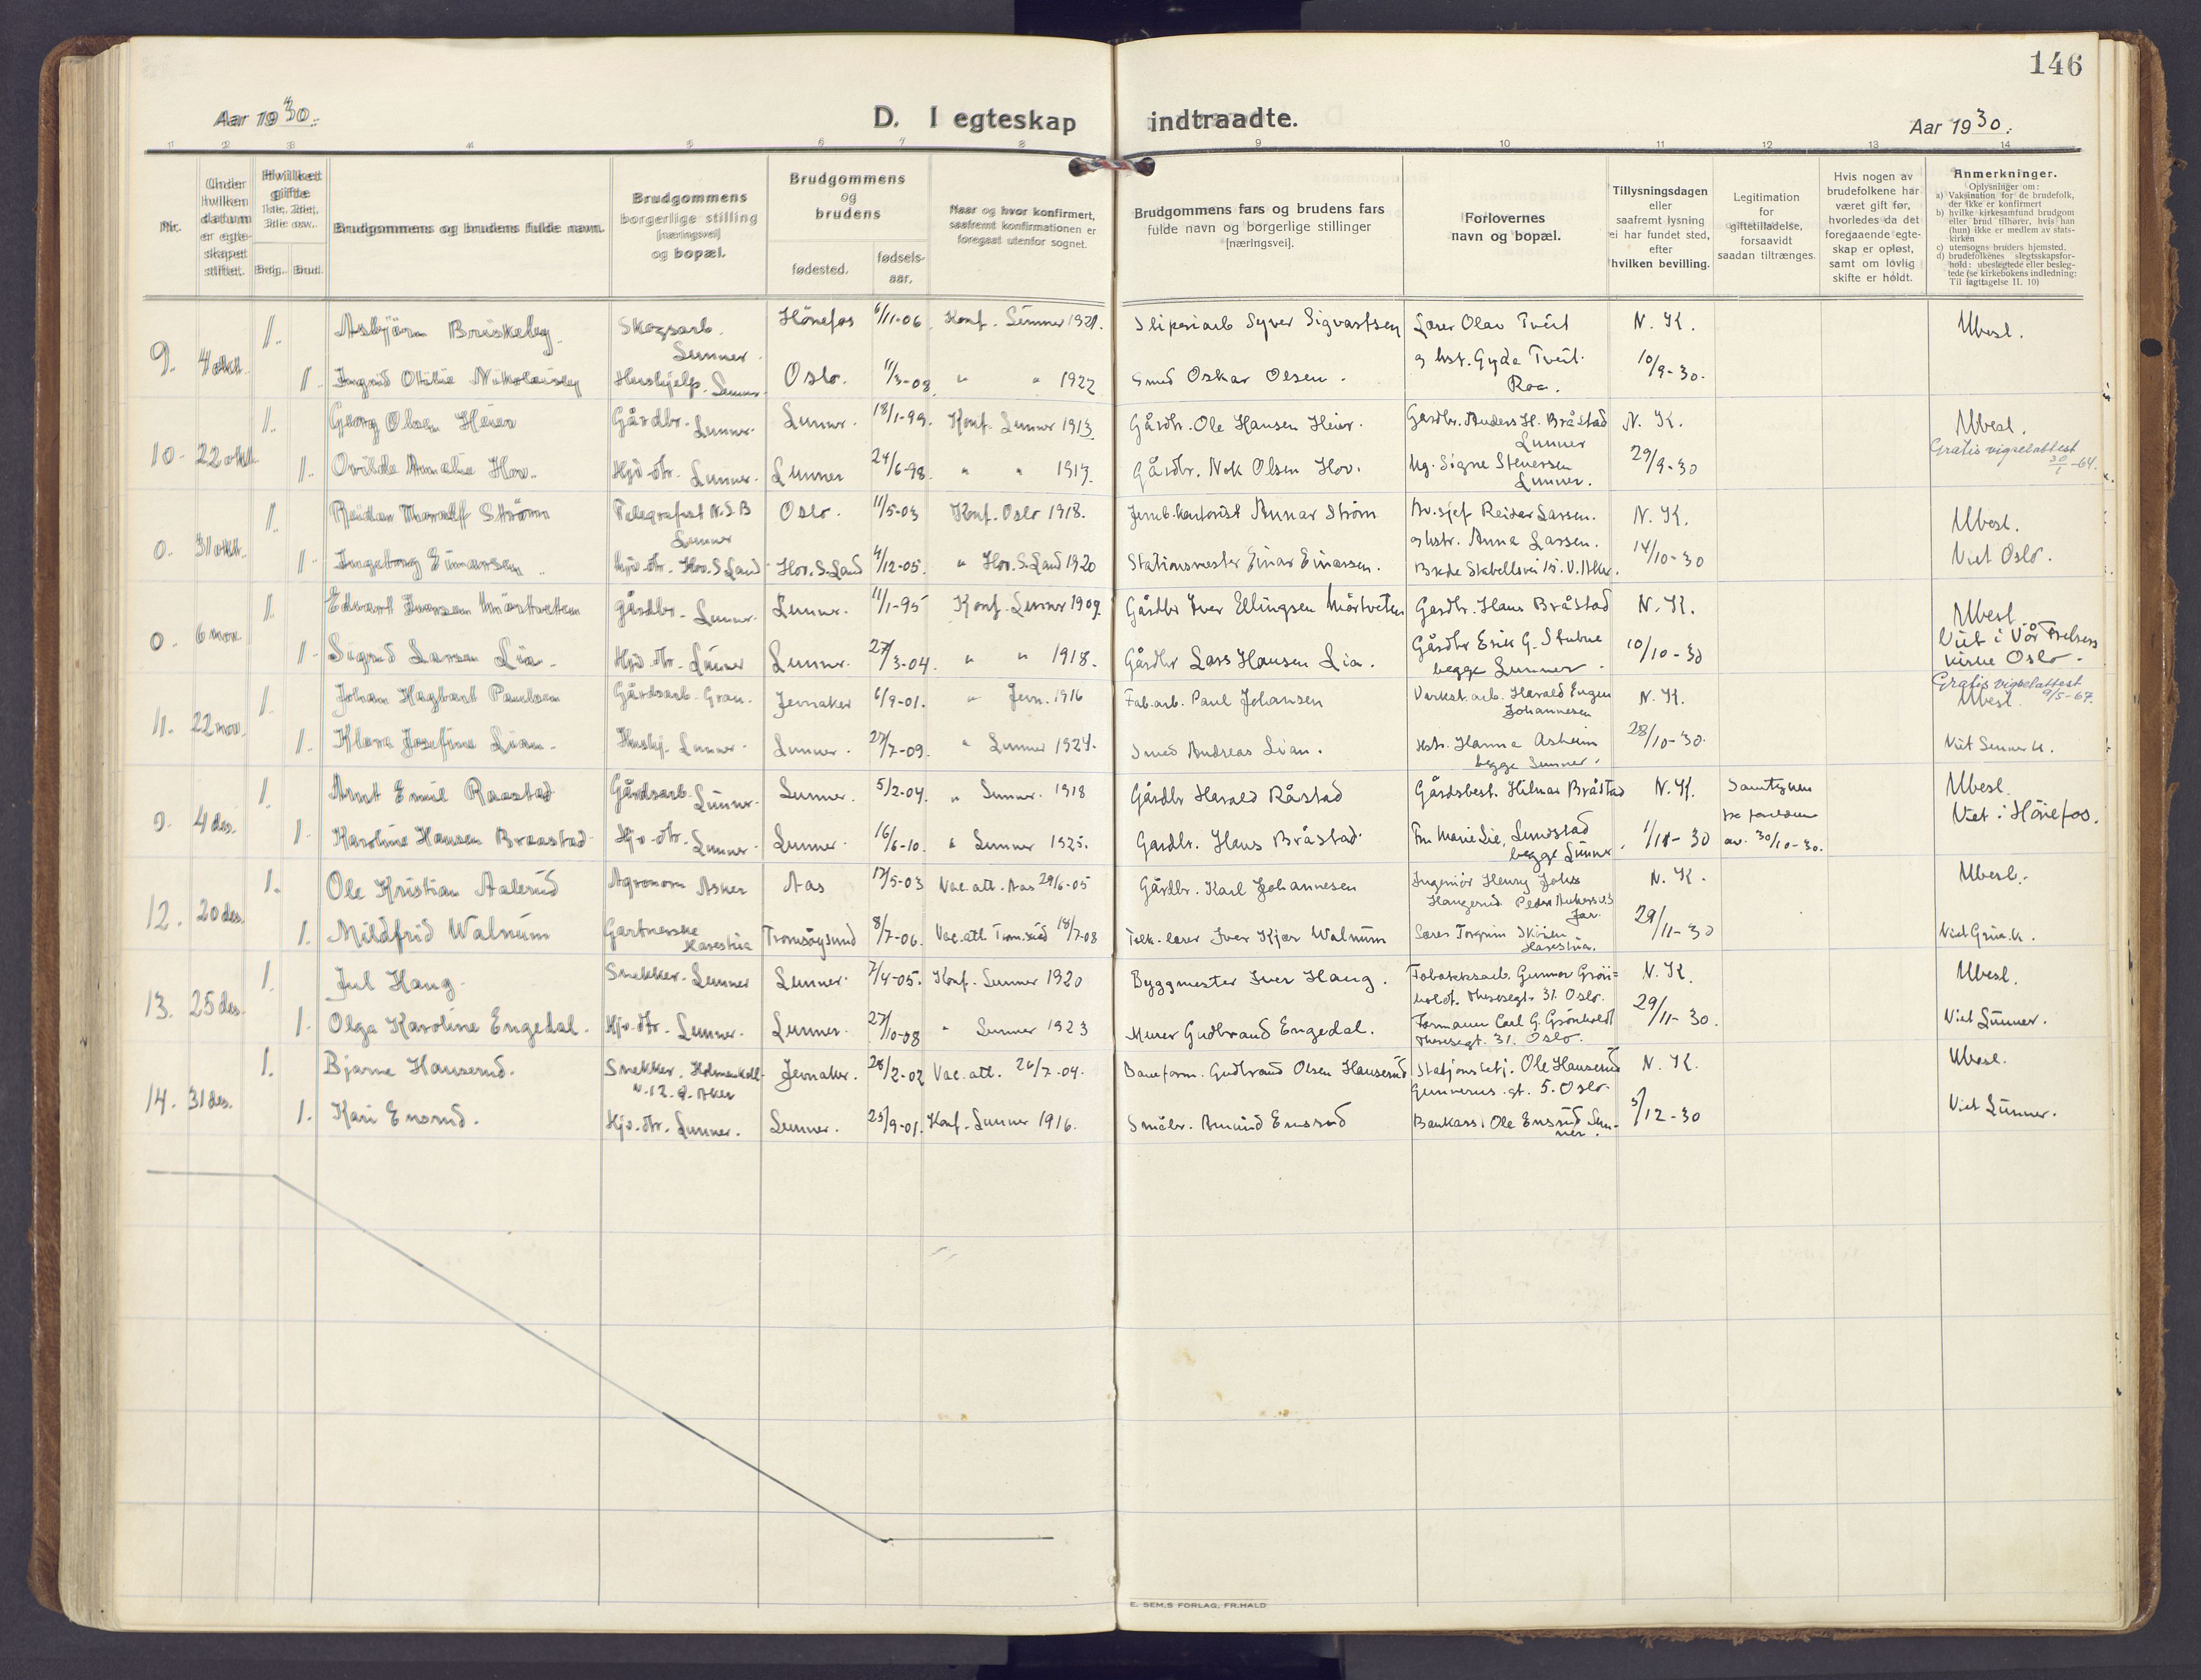 146
Aar 1930.
D. I egteskap indtraadte.
Aar 1930.
1 2 3 4 5 6 7 8 9 10 11 12 13 14
Nr.
Under hvilken datum er egteskapet stiftet.
Hvilket gifte 1ste, 2det, 3die osv.
Brdg. Brud.
Brudgommens og brudens fulde navn.
Brudgommens borgerlige stilling [næringsvei] og bopæl.
Brudgommens og brudens
fødested.
fødselsaar.
Naar og hvor konfirmert, saafremt konfirmationen er foregaat utenfor sognet.
Brudgommens fars og brudens fars fulde navn og borgerlige stillinger [næringsvei].
Forlovernes navn og bopæl.
Tillysningsdagen eller saafremt lysning ei har fundet sted, efter hvilken bevilling.
Legitimation for giftetilladelse, forsaavidt saadan tiltrænges.
Hvis nogen av brudefolkene har været gift før, hvorledes da det foregaaende egteskap er opløst, samt om lovlig skifte er holdt.
Anmerkninger.
Oplysninger om:
a) Vaksination for de brudefolk, der ikke er konfirmert
b) hvilke kirkesamfund brudgom eller brud tilhører, hvis han (hun) ikke er medlem av statskirken
c) utensogns bruders hjemsted.
d) brudefolkenes slegtsskapsforhold: ubeslegtede eller beslegtede (se kirkebokens indledning: Til iagttagelse II. 10)
9. 4 okt. 1. Asbjörn Briskeby. Skogsarb. Lunner. Hönefos 6/11-06. Konf. Lunner 1921. Slipesiarb Syver Sigvartsen Lærer Olav Tveit N. K. Ubesl.
1. Ingrid Otilie Nikolaisen Hushjelp. Lunner. Oslo. 11/3-08. " " 1922 Smed Oskar Olsen. og hst. Gyda Tveit. Roa. 10/9-30.
10. 22 okt. 1. Georg Olsen Heier Gårdbr. Lunner. Lunner. 18/1-99. Konf. Lunner 1913. Gårdbr. Ole Hansen Heier. Gardbr. Anders H. Bråstad Lunner N. K. Ubesl.
Gratis vigselattest 30/1-64.
1. Ovilde Amalie Hov. Hjv. dtr. Lunner. Lunner 24/6-98. " " 1913. Gårdbr. Nek Olsen Hov. Ug. Signe Stenersen Lunner. 29/9-30
0. 31 okt. 1. Reidar Thoralf Ström Telegrafist N.S.B Lunner Oslo. 11/5-03 Konf. Oslo 1918. Jernb.kontorist Annar Ström Av.sjef Reidar Larsen. N. K. Ubesl.
1. Ingeborg Einarsen Hjv. dtr. Hov. S. Land Hov. S. Land 4/12-05. " Hov. S. Land 1920 Stationsmester Einar Einarsen. og hstr. Anna Larsen. 14/10-30 Viet Oslo.
0. 6 nov. 1. Edvart Iversen Mörtveten gårdbr. Lunner. Lunner. 11/1-95 Konf. Lunner 1909. Gårdbr Iver Ellingsen Mörtveten Gardbr. Hans Bråstad N. K. Ubesl.
1. Sigrid Larsen Lia. Hjv. dtr. Lunner Lunner. 27/3-04. " " 1918. Gårdbr Lars Hansen Lia. Gårdbr Erik G. Stubne begge Lunner. 10/10-30 Viet i Vår Frelsers kirke Oslo.
Gratis vigselattest 9/5-67.
11. 22 nov. 1. Johan Hagbart Paulsen Gårdsarb. Gran. Jevnaker 6/9-01. " Jevn. 1916 Fab.arb. Paul Johansen Verkst.arb. Harald Eugen Johannesen N. K. Ubesl.
1. Klara Josefine Lian. Hushj. Lunner. Lunner. 27/7-09. " Lunner 1924. Smed Andreas Lian. Hstr. Hanna Asheim begge Lunner. 28/10-30. Viet Lunner k.
0. 4 des. 1. Arnt Emil Raastad Gårdsarb. Lunner. Lunner. 5/2-04. " Lunner. 1918 Gårdbr Harald Råstad Gårdsbest. Hilmar Bråstad N. K. Samtykke fra foreldrene av 30/10-30. Ubesl.
1. Karoline Hansen Braastad Hjv. dtr. Lunner. Lunner. 16/6-10. " Lunner 1925. Gardbr. Hans Bråstad. Fru Marie Lie, Lundstad begge Lunner. 1/11-30 Viet i Hönefos.
12. 20 des. 1. Ole Kristian Aalerud Agronom Asker Aas 17/5-03 Vac. att. Aas 29/6-05 Gårdbr. Karl Johannesen Ingeniör Henry Johs Haugerud N. K. Ubesl.
1. Mildfrid Walnum Gartnerske Harestua Tromsöysund 8/7-06. Vac. att. 18/7-08 Folk.lærer Iver Kjær Walnum Lærer Torgrim Sköien Harestua. 29/11-30 Viet Grua k.
13. 25 des. 1. Jul Haug. Snekker. Lunner Lunner. 7/4-05. Konf. Lunner 1920 Byggmester Iver Haug. Tobakksarb. Gunnar Grönholdt. Theresegt. 31. Oslo. N. K. Ubesl.
1. Olga Karoline Engedal. Hjv. dtr. Lunner. Lunner. 27/10-08 " Lunner 1923 Murer Gudbrand Engedal. Formann Carl G. Grönholdt Theresegt. 31. Oslo. 29/11-30. Viet Lunner.
14. 31 des. 1. Bjarne Hauserud. Snekker. Holmenkoll. v. 12. Ø. Aker Jevnaker. 28/2-02 Vac. att. 26/7-04. Baneform. Gudbrand Olsen Hauserud Stasjonsbetj. Ole Hauserud Gunnerus gt. 5. Oslo. N. K. Ubesl.
1. Kari Ensrud. Hjv. dtr. Lunner. Lunner. 25/9-01. Konf. Lunner 1916. Småbr. Amund Ensrud Bankass. Ole Ensrud Lunner. 5/12-30 Viet Lunner.
E. SEM.S FORLAG, FR.HALD